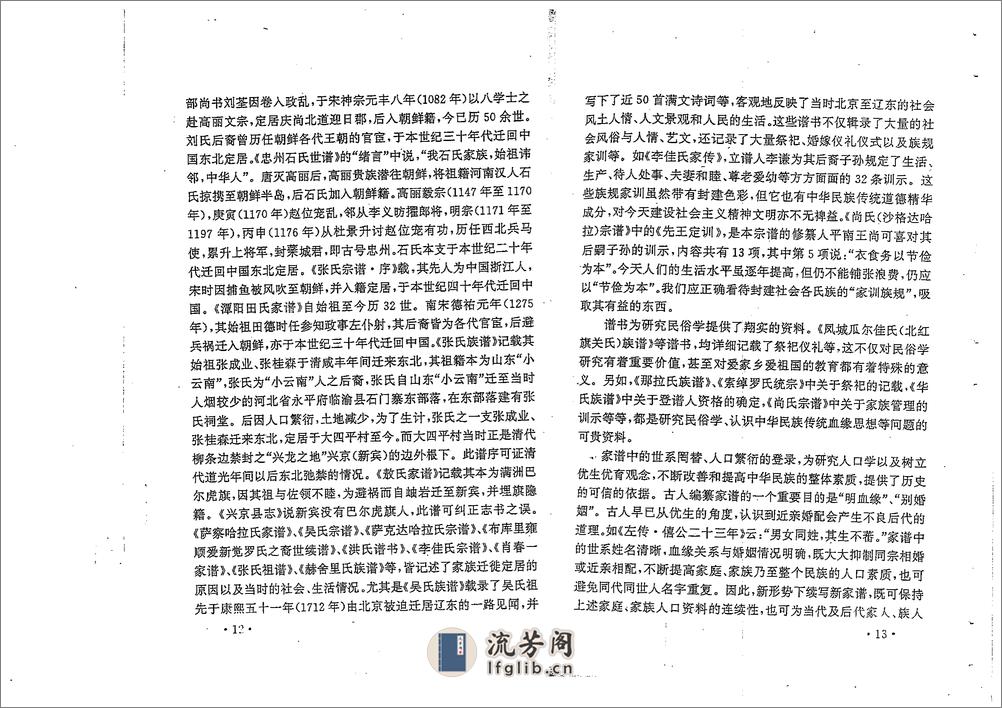 部尚书刘荃因卷入政乱，于宋神宗元丰八年(1082 年)以八学士之
赴高丽文宗，定居庆尚北道迎日郡，后入朝鲜籍，今已历 50 余世。
刘氏后裔曾历任朝鲜各代王朝的官宦，于本世纪三十年代迁回中
国东北定居。《忠州石氏世谱》的“绪言”中说，“我石氏家族，始祖讳
邻，中华人”。唐灭高丽后，高丽贵族潜往朝鲜，将祖籍河南汉人石
氏掠携至朝鲜半岛，后石氏加入朝鲜籍。高丽毅宗(1147 年至 1170
年)，庚寅(1170 年)赵位宠乱，邻从李义昉擢郎将，明宗(1171 年至
1197 年)，丙申(1176 年)从杜景升讨赵位宠有功，历任西北兵马
使，累升上将军，封蘂城君，即古号忠州。石氏本支于本世纪二十年
代迁回中国东北定居。《张氏宗谱·序》载，其先人为中国浙江人，
宋时因捕鱼被风吹至朝鲜，并入籍定居，于本世纪四十年代迁回中
国。《潭阳田氏家谱》自始祖至今历 32 世。南宋德祐元年(1275
年)，其始祖田德时任参知政事左仆射，其后裔皆为各代官宦，后避
兵祸迁入朝鲜，亦于本世纪三十年代迁回中国。《张氏族谱》记载其
始祖张成业、张桂森于清咸丰年间迁来东北，其祖籍本为山东“小
云南”，张氏为“小云南”人之后裔，张氏自山东“小云南”迁至当时
人烟较少的河北省永平府临渝县石门寨东部落，在东部落建有张
氏祠堂。后因人口繁衍，土地减少，为了生计，张氏之一支张成业、
张桂森迁来东北，定居于大四平村至今。而大四平村当时正是清代
柳条边禁封之“兴龙之地”兴京(新宾)的边外根下。此谱序可证清
代道光年间以后东北弛禁的情况。《敖氏家谱》记载其本为满洲巴
尔虎旗，因其祖与佐领不睦，为避祸而自岫岩迁至新宾，并埋旗隐
籍。《兴京县志》说新宾没有巴尔虎旗人，此谱可纠正志书之误。
《萨察哈拉氏家谱》、《吴氏宗谱》、《萨克达哈拉氏宗谱》、《布库里雍
顺爱新觉罗氏之裔世续谱》、《洪氏谱书》、《李佳氏宗谱》、《肖春一
家谱》、《张氏祖谱》、《赫舍里氏族谱》等，皆记述了家族迁徙定居的
原因以及当时的社会、生活情况。尤其是《吴氏族谱》载录了吴氏祖
先于康熙五十一年(1712 年)由北京被迫迁居辽东的一路见闻，并
·12·
写下了近 50 首满文诗词等，客观地反映了当时北京至辽东的社会
风土人情、人文景观和人民的生活。这些谱书不仅辑录了大量的社
会风俗与人情、艺文，还记录了大量祭祀、婚嫁仪礼仪式以及族规
家训等。如《李佳氏家传》，立谱人李谦为其后裔子孙规定了生活、
生产、待人处事、夫妻和睦、尊老爱幼等方方面面的 32 条训示。这
些族规家训虽然带有封建色彩，但它也有中华民族传统道德精华
成分，对今天建设社会主义精神文明亦不无裨益。《尚氏(沙格达哈
拉)宗谱》中的《先王定训》，是本宗谱的修纂人平南王尚可喜对其
后嗣子孙的训示，内容共有 13 项，其中第 5 项说：“衣食务以节俭
为本”。今天人们的生活水平虽逐年提高，但仍不能铺张浪费，仍应
以“节俭为本”。我们应正确看待封建社会各氏族的“家训族规”，吸
取其有益的东西。
谱书为研究民俗学提供了翔实的资料。《凤城瓜尔佳氏(北红
旗关氏)族谱》等谱书，均详细记载了祭祀仪礼等，这不仅对民俗学
研究有着重要价值，甚至对爱家乡爱祖国的教育都有着特殊的意
义。另如，《那拉氏族谱》、《索绰罗氏统宗》中关于祭祀的记载，《华
氏族谱》中关于登谱人资格的确定，《尚氏宗谱》中关于家族管理的
训示等等，都是研究民俗学、认识中华民族传统血缘思想等问题的
可贵资料。
家谱中的世系罔替、人口繁衍的登录，为研究人口学以及树立
优生优育观念，不断改善和提高中华民族的整体素质，提供了历史
的可信的依据。古人编纂家谱的一个重要目的是“明血缘”、“别婚
姻”。古人早已从优生的角度，认识到近亲婚配会产生不良后代的
道理。如《左传·僖公二十三年》云：“男女同姓，其生不蕃。”家谱中
的世系姓名清晰，血缘关系与婚姻情况明确，既大大抑制同宗相婚
或近亲相配，不断提高家庭、家族乃至整个民族的人口素质，也可
避免同代同世人名字重复。因此，新形势下续写新家谱，既可保持
上述家庭、家族人口资料的连续性，也可为当代及后代家人、族人
·13·
流芳阁
lfglib.cn